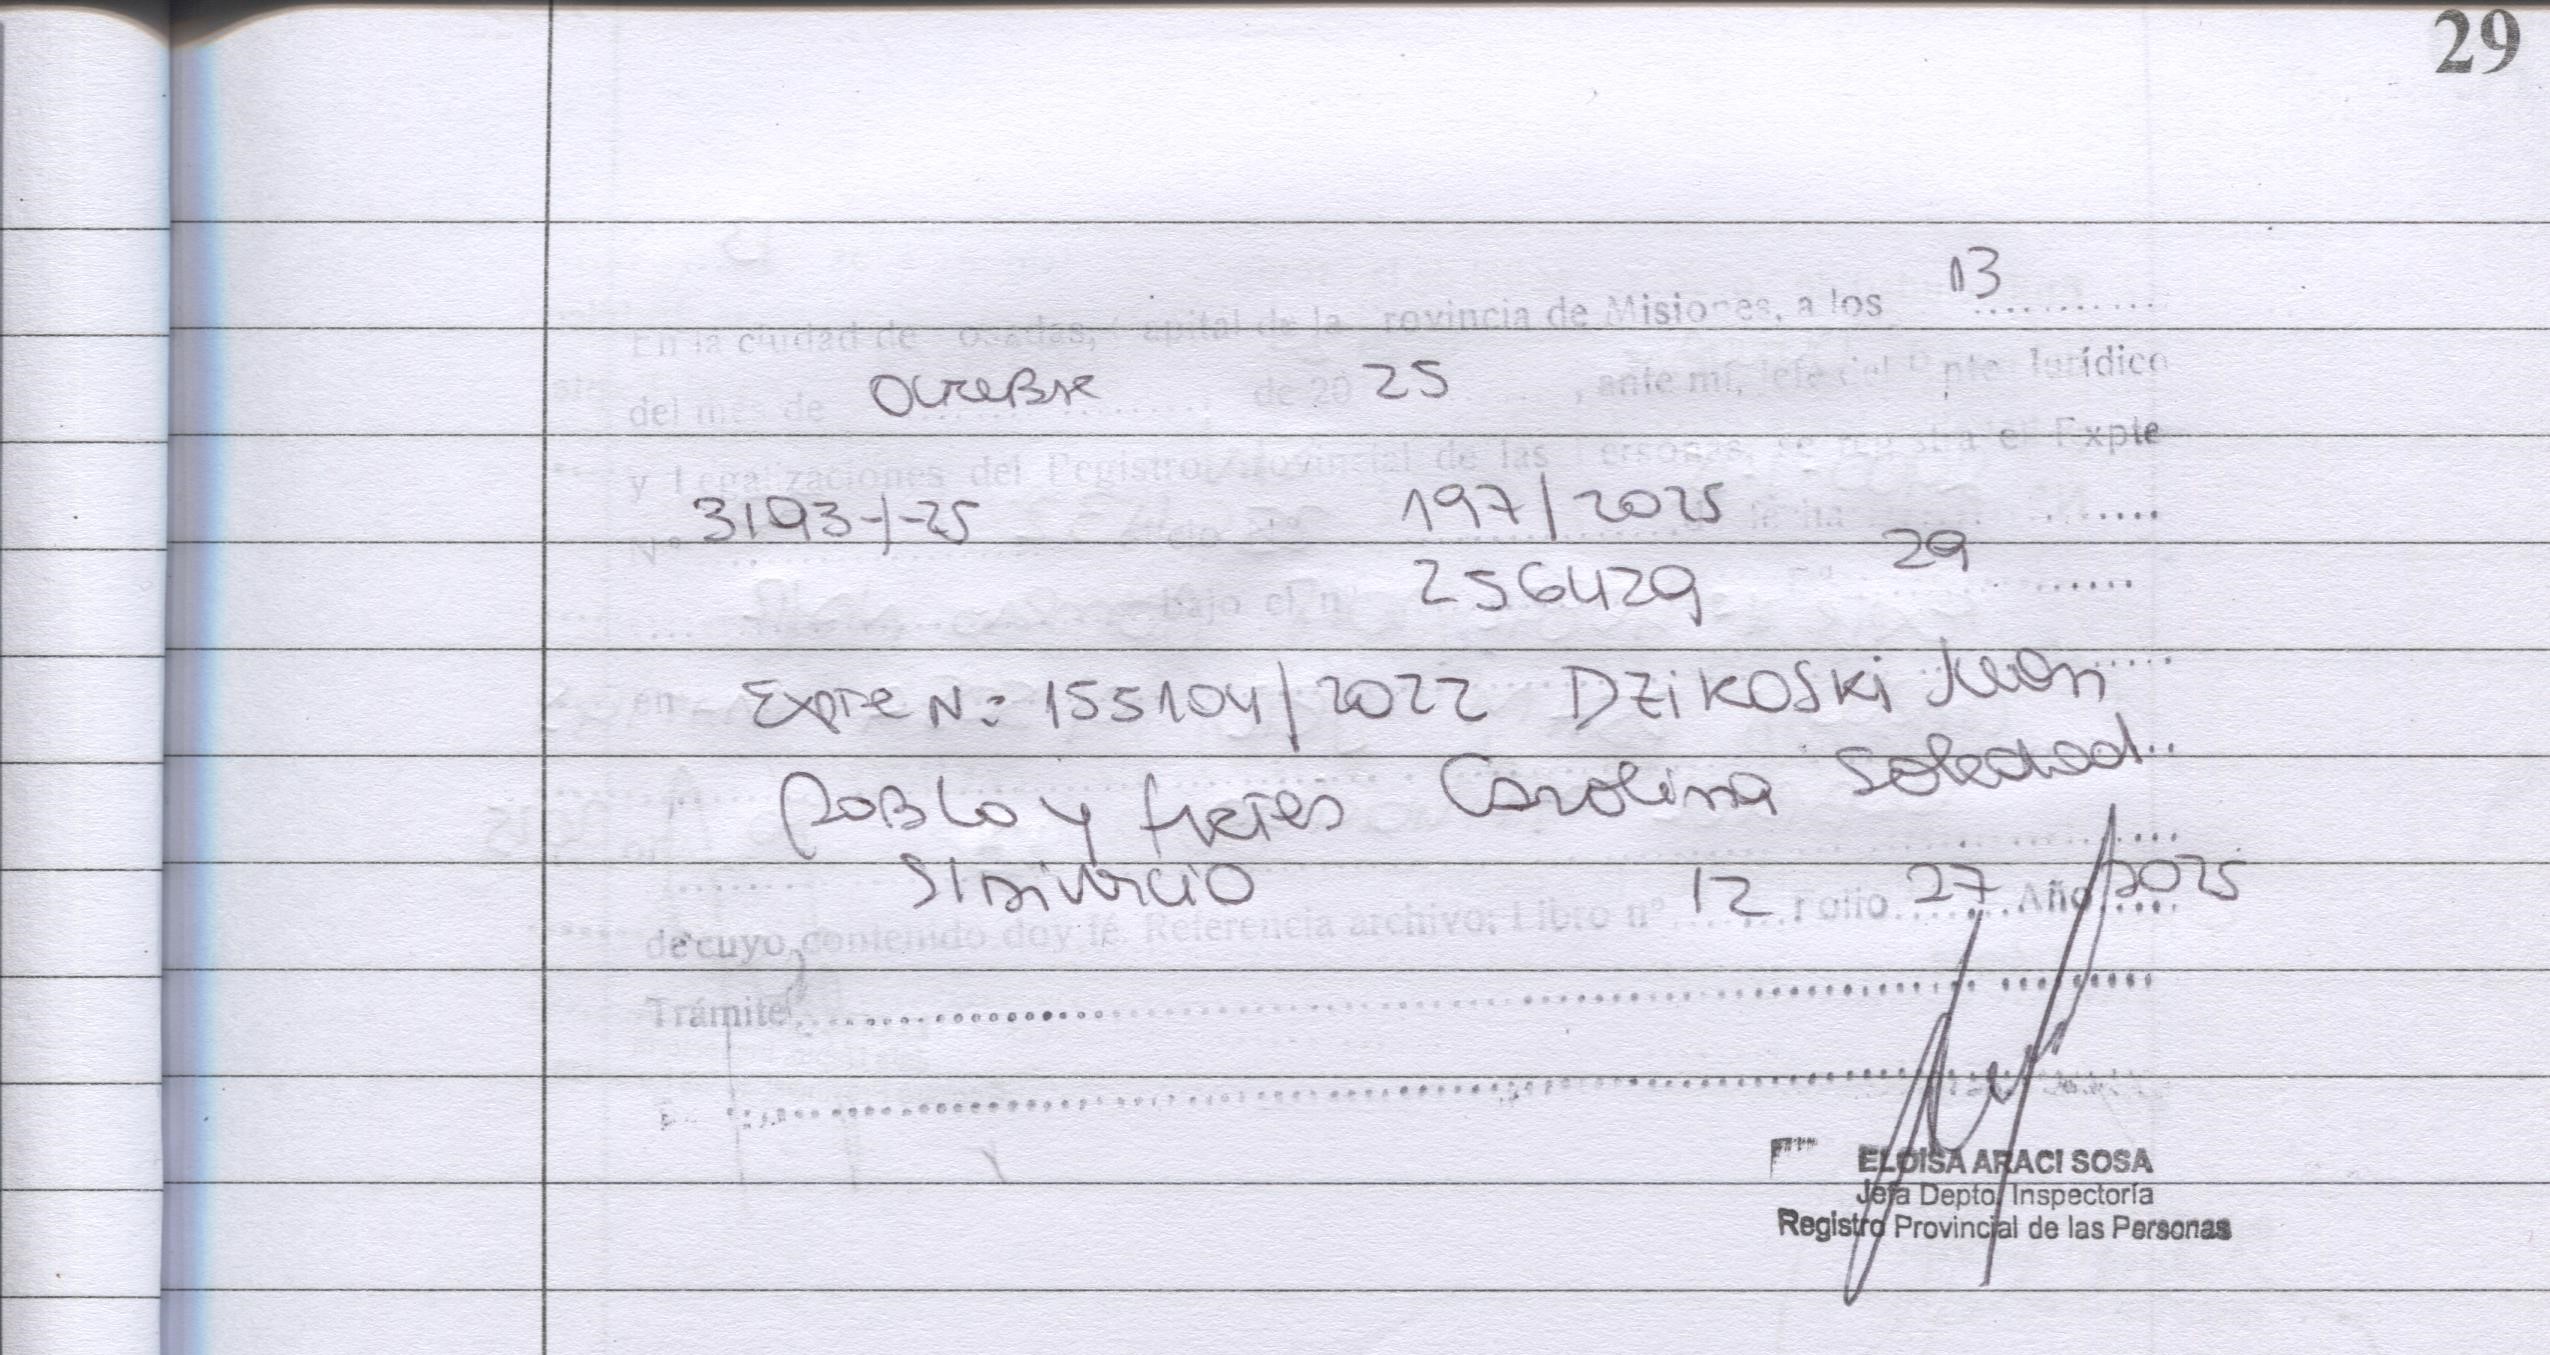 29
En la ciudad de osadas, apital de la rovincia de Misiones, a los 13
del mes de Octubre de 20 25, ante mí, Jefe del Dpto Jurídico
y Legalizaciones del Registro Provincial de las ersonas, se registra el Expte
Nº 3193-/-25 197/2025 fecha
Bajo el nº 256429 Fº 29
en Expte N: 155104/2022 Dzikoski Juan
Pablo y fretes Carolina Soledad
S/Divorcio 12 27 2025
de cuyo contenido doy fé. Referencia archivo: Libro nº Folio Año
Trámite
ELOISA ARACI SOSA
Jefa Depto. Inspectoría
Registro Provincial de las Personas